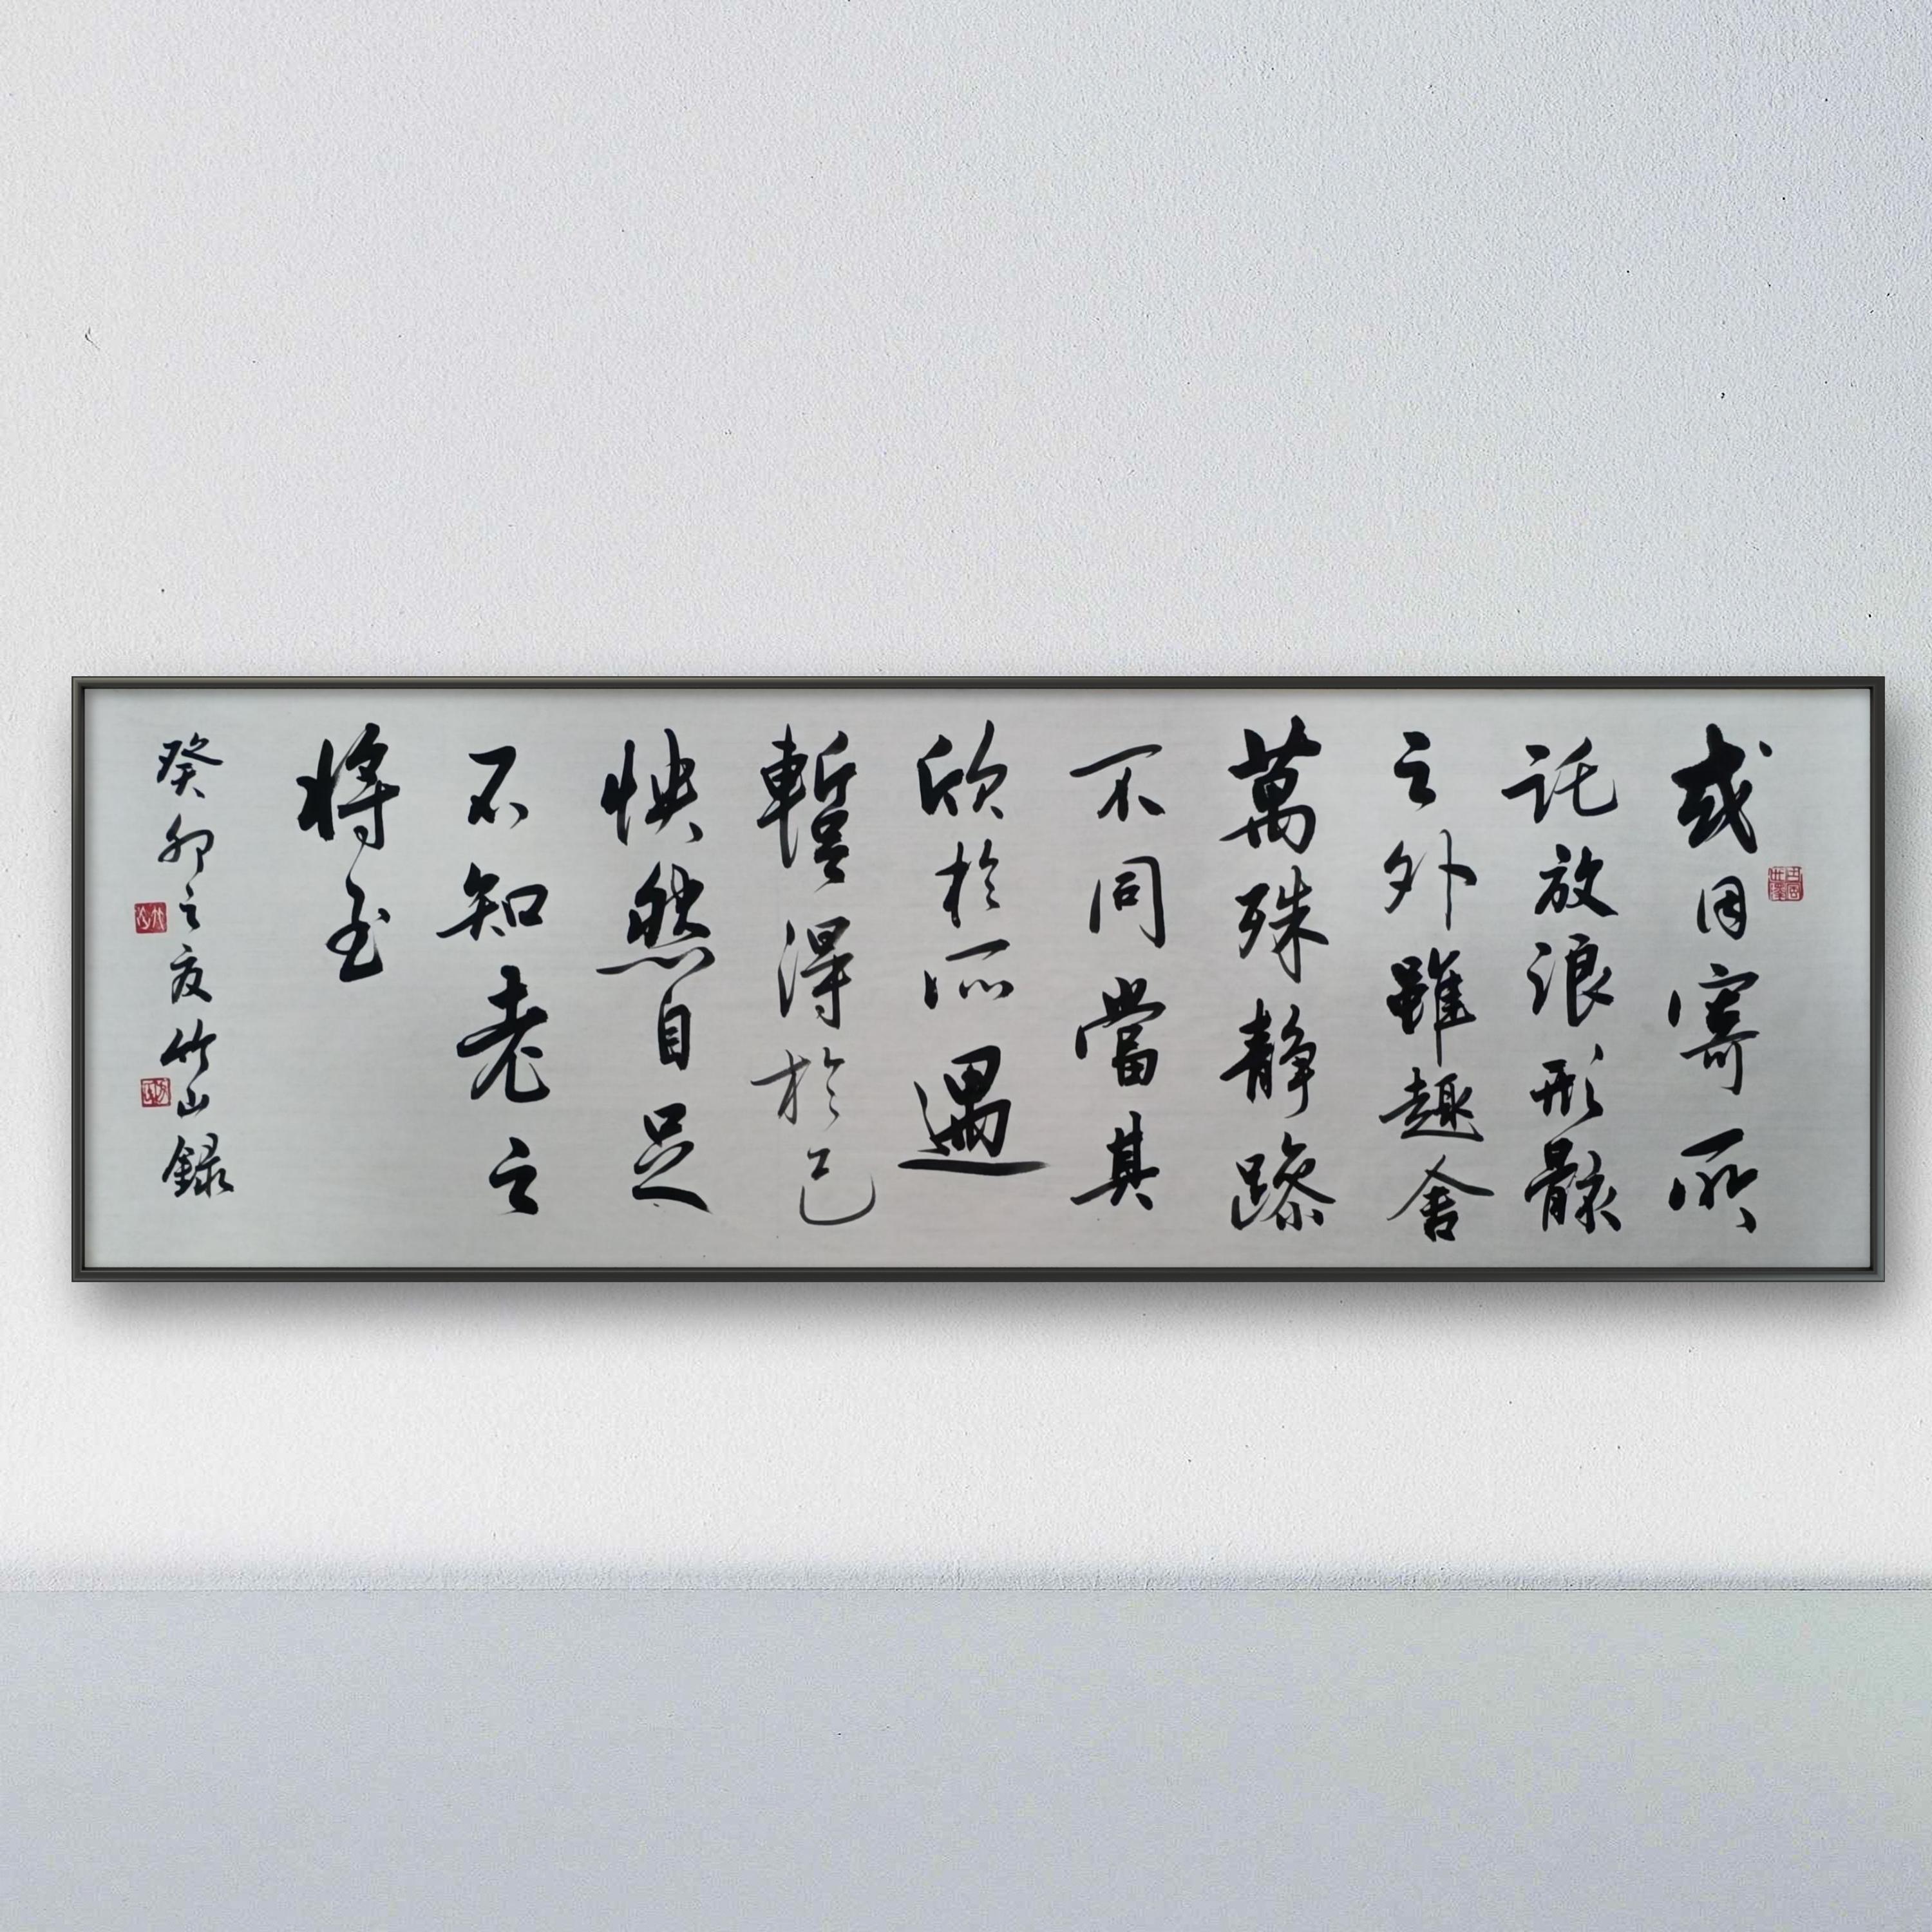 或因寄所
託放浪形骸
之外雖趣舍
萬殊静躁
不同當其
欣於所遇
暫得於己
怏然自足
不知老之
將至
癸卯之夏竹山録